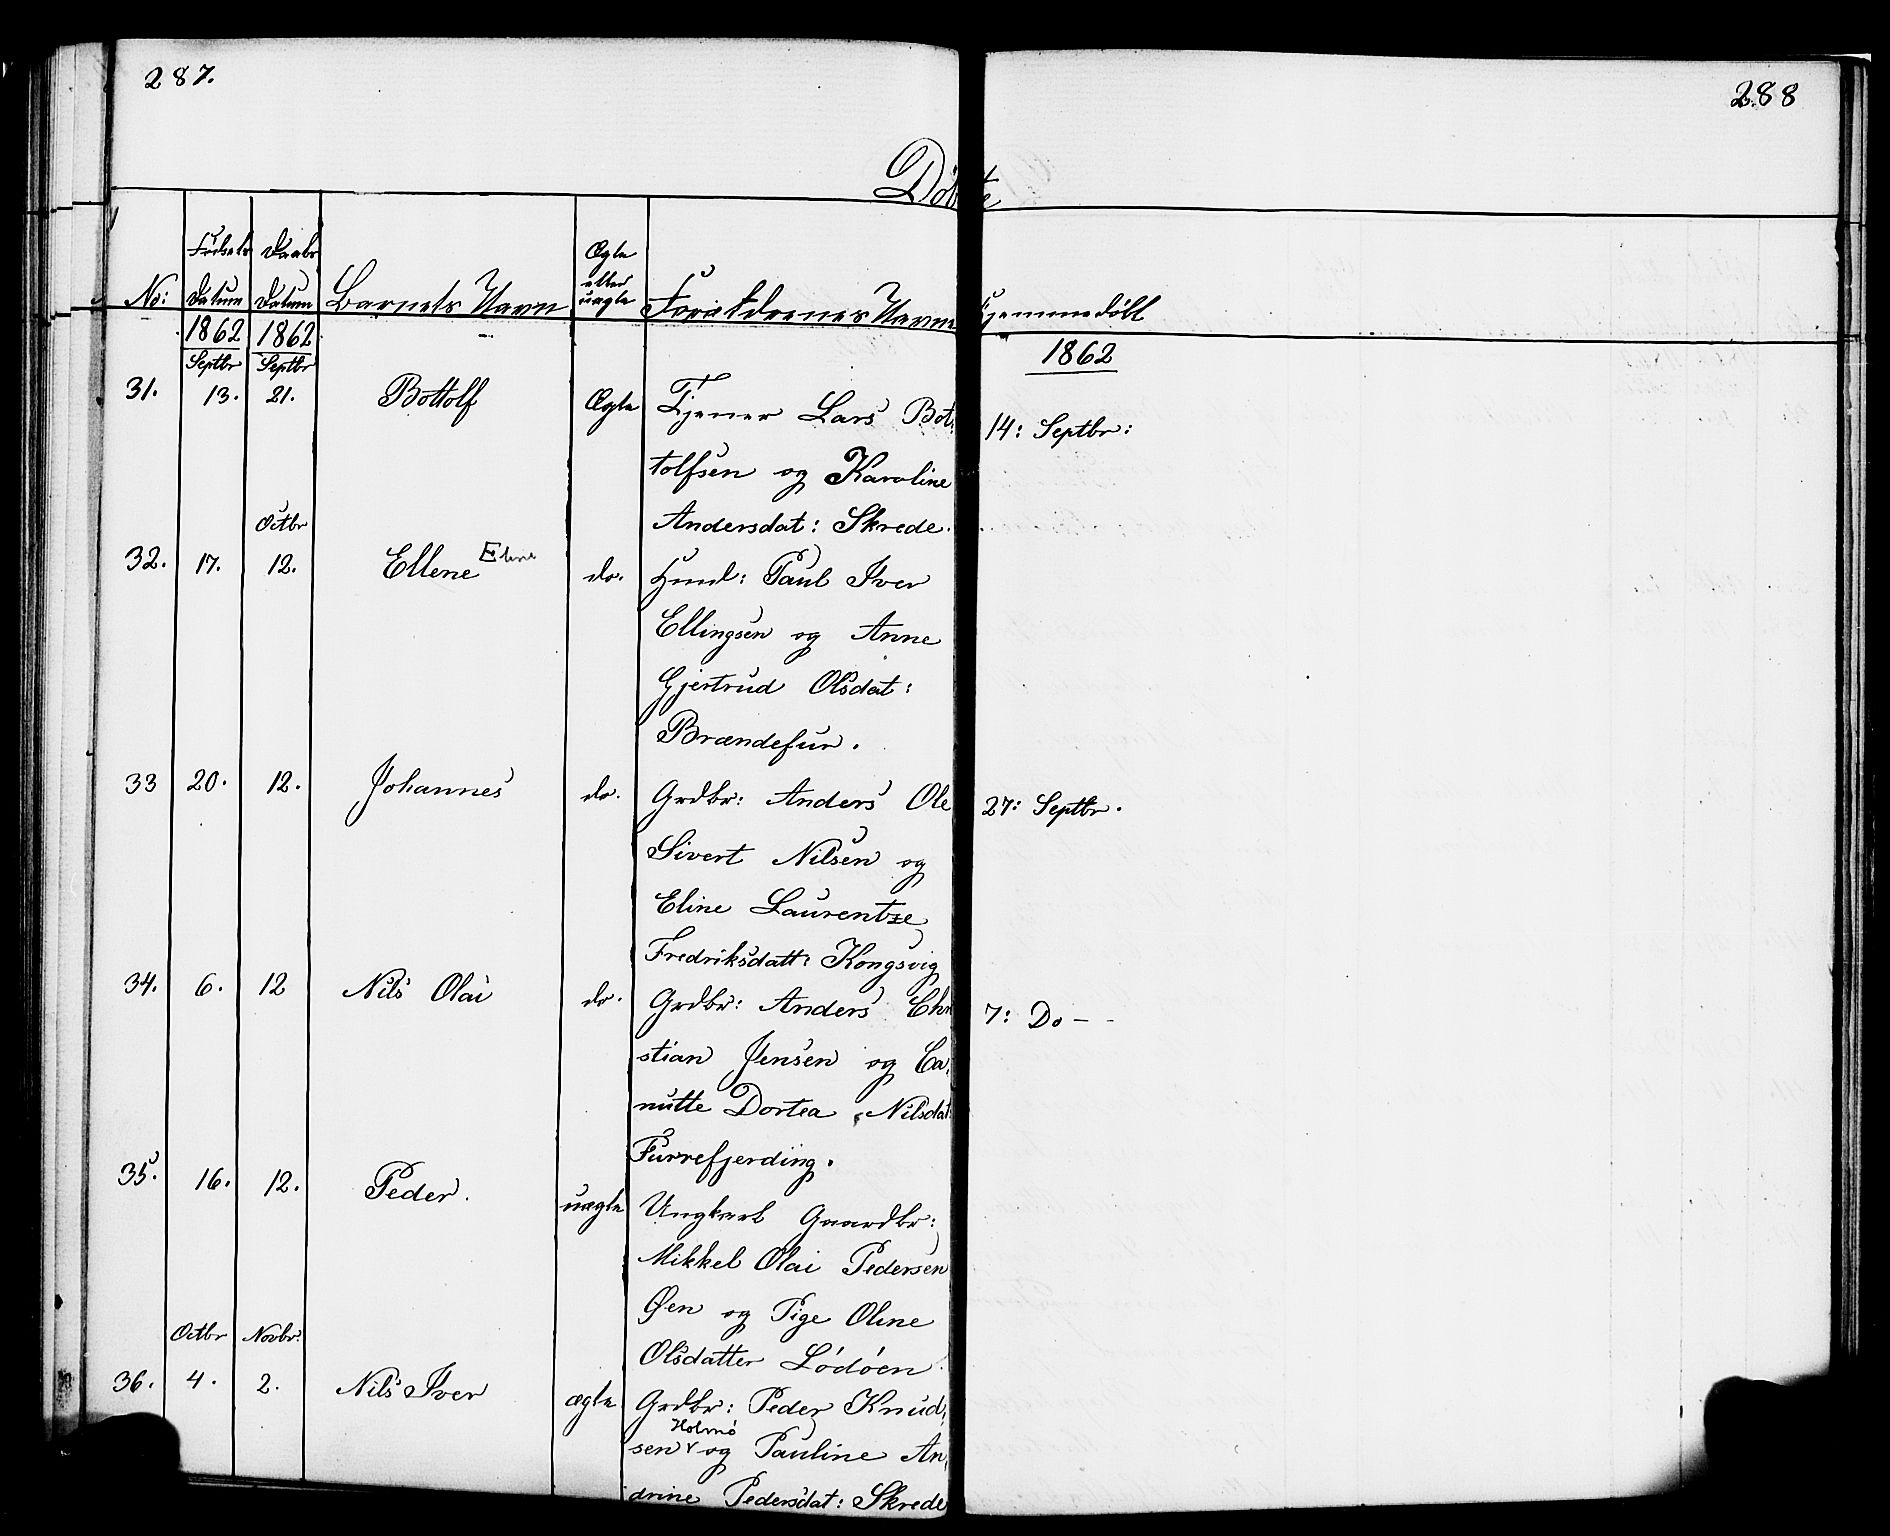 287.
288
Døbte
No: Fødsels Datum Daabs Datum Barnets Navn Ægte eller uægte Forældrenes Navne Hjemmedøbt
1862 1862 1862
Septbr Septbr
31. 13. 21. Bottolf Ægte Tjener Lars Bot: 14: Septbr:
tolfsen og Karoline
Andersdat: Skrede.
Octbr
32. 17. 12. Ellene Eline do. Husm: Paul Iver
Ellingsen og Anne
Gjertrud Olsdat:
Brændefur.
33 20. 12. Johannes do. Grdbr: Anders Ole 27: Septbr.
Sivert Nilsen og
Eline Laurentze
Fredriksdatt: Kongsvig
34. 6. 12 Nils Olai do. Grdbr: Anders Chri 7: Do - -
stian Jensen og Ca,
nutte Dortea Nilsdat
Furrefjerding.
35. 16. 12. Peder. uægte Ungkarl Gaardbr:
Mikkel Olai Pedersen
Øen og Pige Oline
Olsdatter Lødøen.
Octbr Novbr:
36. 4. 2. Nils Iver ægte Grdbr: Peder Knud,
Holmø
sen og Pauline An,
drine Pedersdat: Skrede